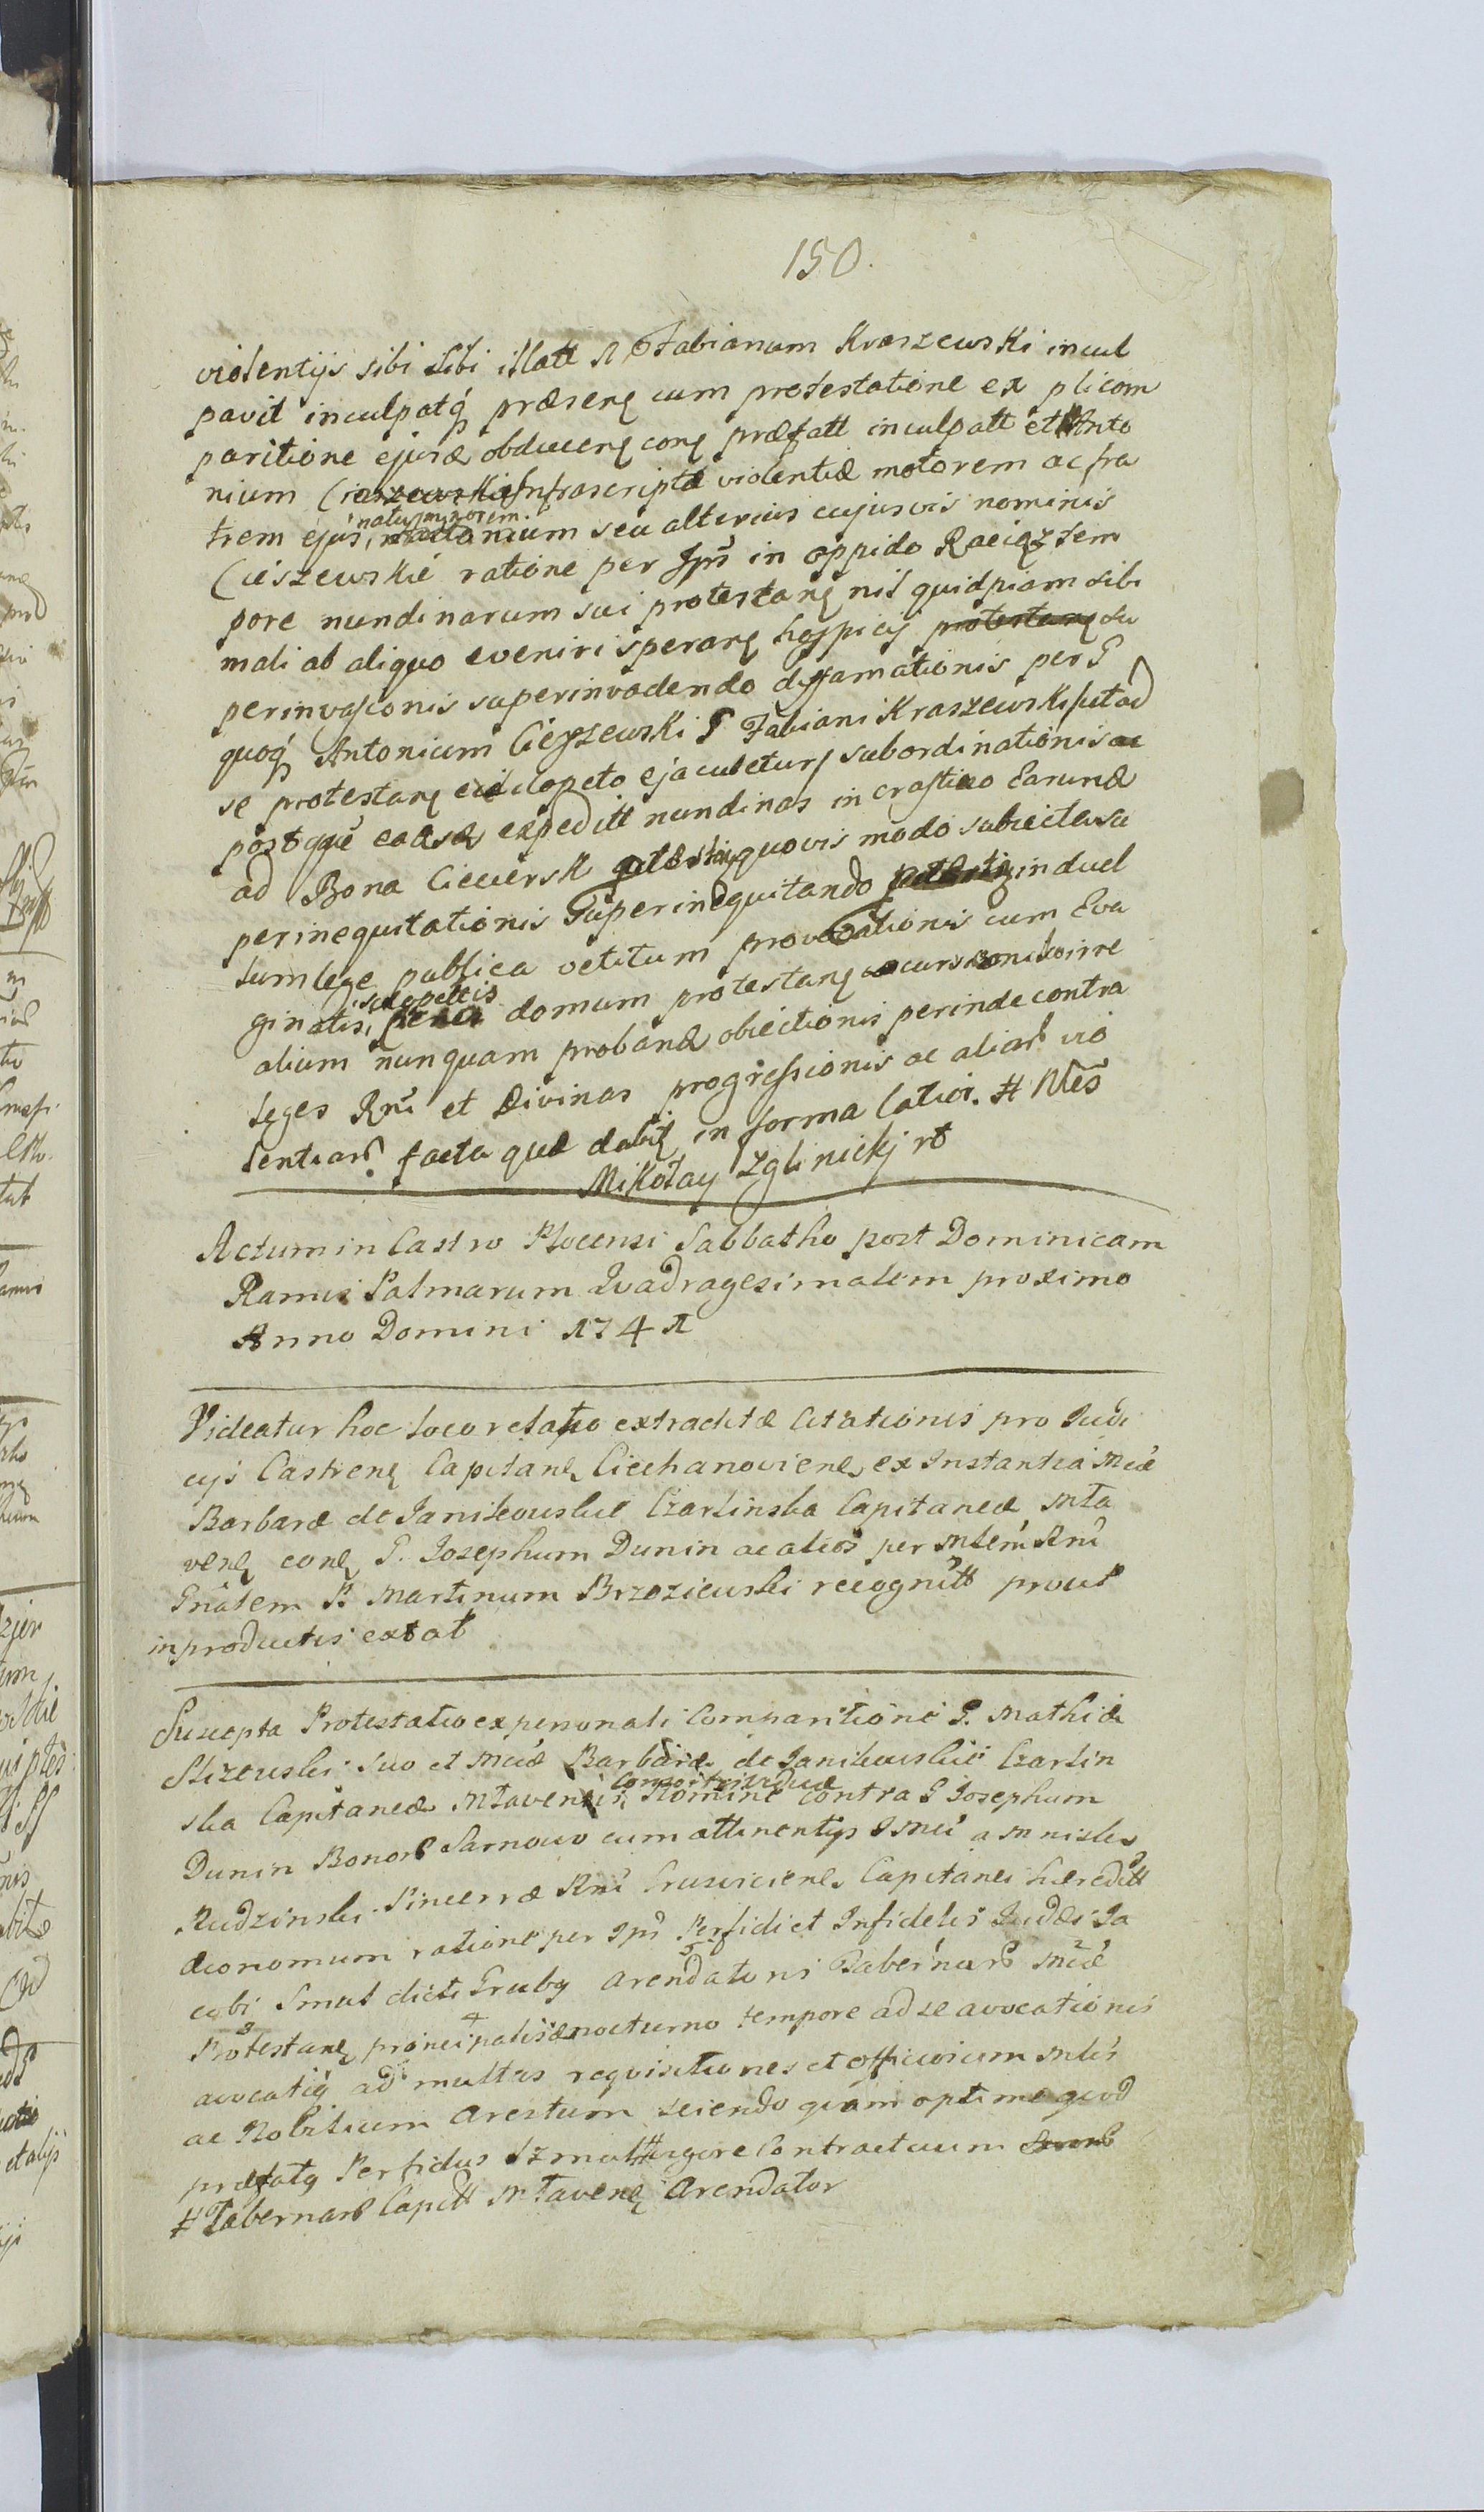 150.
violentijs sibi sibi illatt N Fabianum Kraszewski incul
pavit inculpatq́ præsenꝫ cum protestatione ex plicom
paritione ejusd obducenꝫ conꝫ præfatt inculpatt et Anto
nium Infrascriptæ violentiæ motorem ac fra
trem ejus, natu minorem seu alterius cujusvis nominis
Cieszewskie ratione per Ipm̃ in oppido Raciąz tem
pore nundinarum sui protestanꝫ nil quidpiam sibi
mali ab aliquo eveniri speranꝫ hospicij protestanꝫ su
perinvasionis superinvadendo diffamationis per G
quoq́ Antonium Cieszewski G Fabiani Kraszewski ut ad
se protestanꝫ sclopeto ejacutetur subordinationis ac
post que easd expeditt nundinas in crastino Earund
ad Bona quovis modo subiecte su
perinequitationis Superinequitando in duel
lum lege publica vetitum provocationis cum Eva
ginatis, sclopettis domum protestanꝫ
alium nunquam proband obiectionis perinde contra
leges Rni et Divinas progressionis ac aliar vio
lentiar facta que dabit in forma latior. # Ntes
Mikołay Zglinickj rō
Actum in Castro Plocensi Sabbatho post Dominicam
Ramis Palmarum Quadragesimalem proximo
Anno Domini 1741
Videatur hoc loco relatio extraditæ Citationis pro Judi
cijs Castrenꝫ Capitanꝫ Ciechanovienꝫ ex Instantia Mcæ
Barbaræ de Janikowskie Czarlinska Capitaneæ Mła
venꝫ conꝫ G. Josephum Dunin ac alios per Mlem Rni
Gnałem P. Martinum Brzoziewski recognitt prout
in productis extat
Suscepta Protestatio ex personali Comparitione G. Mathiæ
Slizewski suo et Mcæ Barbaræ de Janikowskie Czarlin
ska Capitaneæ Młavensis, Consorti viduæ Nomine contra G Josephum
Dunin Bonor Sarnowo cum attinentijs Mci a Mnislew
Rudzinski Pincernæ Rni Crusvicienꝫ Capitanei hæreditt
Æconomum ratione per Ipm̃ Perfidi et Infidelis Judæi Ja
cobi Smul dicti Gruby Arendatoris Tabernar Mcæ
Protestanꝫ principalis nocturno tempore ad se avocationis
avocatiq́ ad multas requisitiones et officiosum Mlis
ac Nobilium Arestum sciendo quam optime quod
præfatq Perfidus Szmul # vigore Contractuum
# Tabernar Capitt Młavenꝫ Arendator